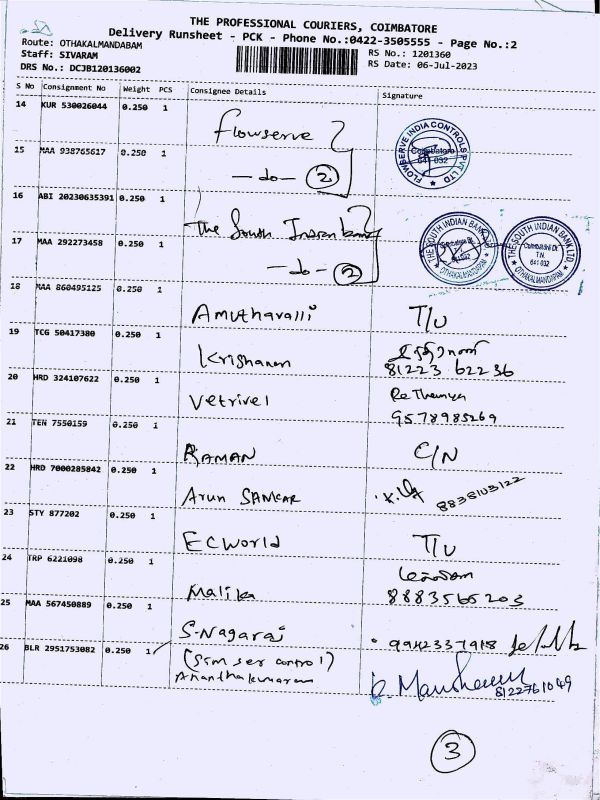 THE PROFESSIONAL COURIERS, COIMBATORE
Delivery Runsheet - PCK - Phone No.:0422-3505555 - Page No.:2
Route: OTHAKALMANDABAM
RS No.: 1201360
Staff: SIVARAM
RS Date: 06-Jul-2023
DRS No.: DCJB120136002
S No Consignment No Weight PCS Consignee Details Signature
14 KUR 530026044 0.250 1
Flowserve
FLOWSERVE INDIA CONTROLS PVT LTD
Coimbatore
641 032
15 MAA 938765617 0.250 1
-do- 2
16 ABI 20230635391 0.250 1
The South Indian bank
THE SOUTH INDIAN BANK LTD.
OTHAKALMANDAPAM
THE SOUTH INDIAN BANK LTD.
Coimbatore Dt.
T.N.
641 032
OTHAKALMANDAPAM
17 MAA 292273458 0.250 1
-do- 2
18 MAA 860495125 0.250 1
Amuthavalli T/U
19 TCG 50417380 0.250 1
Krishanan
81223 62236
20 HRD 324107622 0.250 1
Vetrivel
9578985269
21 TEN 7550159 0.250 1
RAMAN C/N
22 HRD 7000285842 0.250 1
Arun SANKAR 8838103122
23 STY 877202 0.250 1
ECWorld T/U
24 TRP 6221098 0.250 1
Malika 8883565203
25 MAA 567450889 0.250 1
S.Nagaraj 9942337918
26 BLR 2951753082 0.250 1
Ananthakumaran
8122761049
3